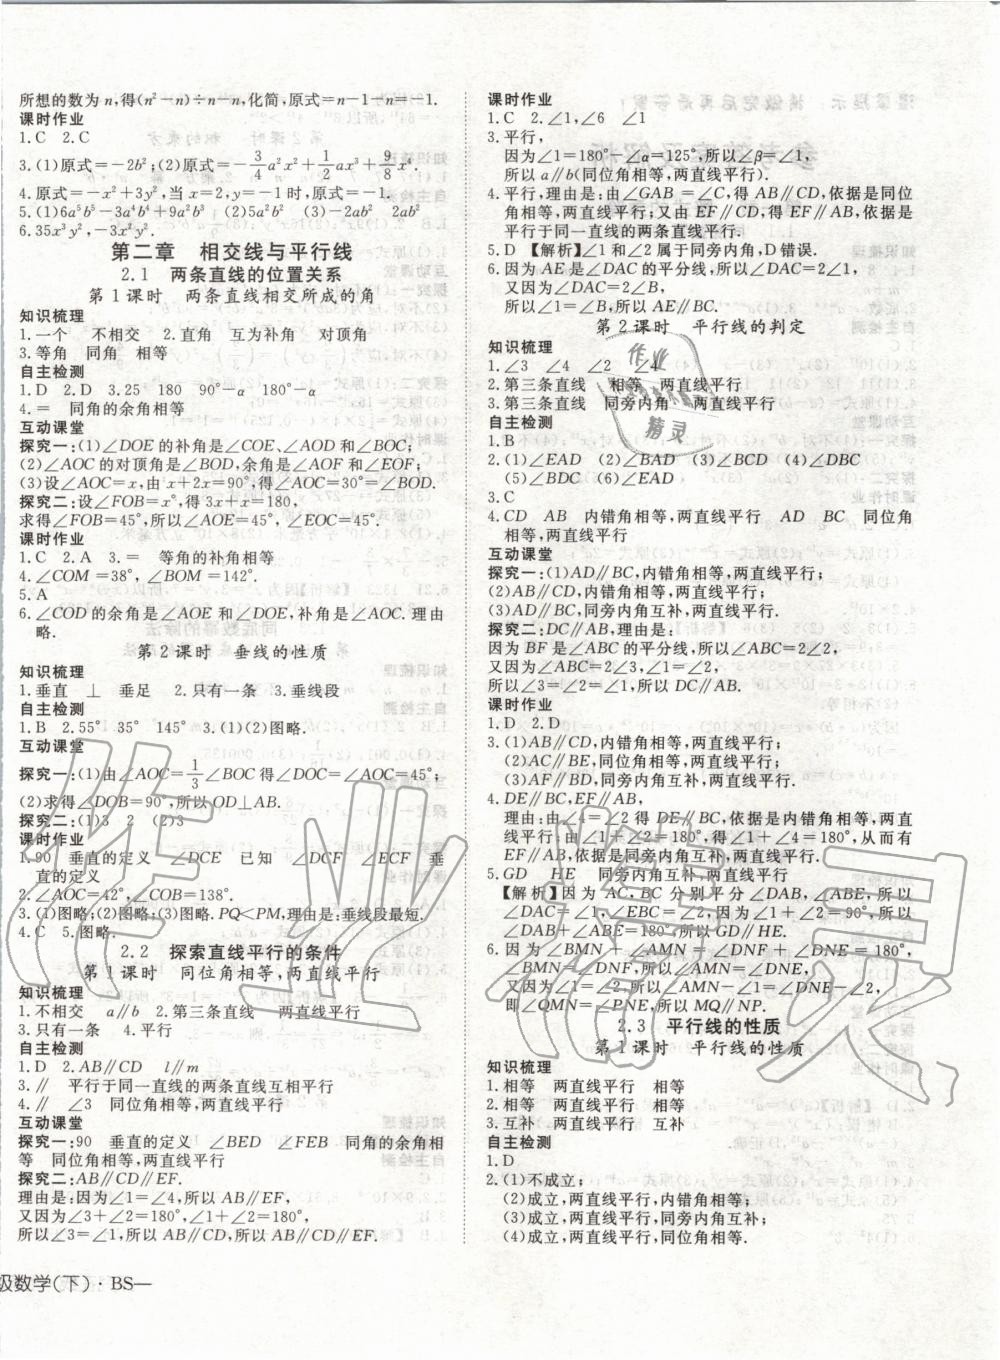 所想的数为n,得(n²-n)÷n-n,化简,原式=n-1-n=-1.
课时作业
1.C 2.C
3.(1)原式=-2b²;(2)原式=-3/4a²x²+1/2ax³+9/8x⁴.
4.原式=-x²+3y²,当x=2,y=-1时,原式=-1.
5.(1)6a⁵b⁵-3a⁴b⁴+9a²b³ (2)5a-2b (3)-2ab² 2ab²
6.35x³y²,-3x²y².
第二章 相交线与平行线
2.1 两条直线的位置关系
第1课时 两条直线相交所成的角
知识梳理
1.一个 不相交 2.直角 互为补角 对顶角
3.等角 同角 相等
自主检测
1.D 2.D 3.25 180 90°-α 180°-α
4.= 同角的余角相等
互动课堂
探究一:(1)∠DOE的补角是∠COE、∠AOD和∠BOC;
(2)∠AOC的对顶角是∠BOD,余角是∠AOF和∠EOF;
(3)设∠AOC=x,由x+2x=90°,得∠AOC=30°=∠BOD.
探究二:设∠FOB=x°,得3x+x=180,
求得∠FOB=45°,所以∠AOE=45°,∠EOC=45°.
课时作业
1.C 2.A 3.= 等角的补角相等
4.∠COM=38°,∠BOM=142°.
5.A
6.∠COD的余角是∠AOE和∠DOE,补角是∠AOC.理由
略.
第2课时 垂线的性质
知识梳理
1.垂直 ⊥ 垂足 2.只有一条 3.垂线段
自主检测
1.B 2.55° 35° 145° 3.(1)(2)图略.
互动课堂
探究一:(1)由∠AOC=1/3∠BOC得∠DOC=∠AOC=45°;
(2)求得∠DOB=90°,所以OD⊥AB.
探究二:(1)3 2 (2)3
课时作业
1.90 垂直的定义 ∠DCE 已知 ∠DCF ∠ECF 垂
直的定义
2.∠AOC=42°,∠COB=138°.
3.(1)图略;(2)图略;(3)图略.PQ<PM,理由是:垂线段最短.
4.C 5.图略.
2.2 探索直线平行的条件
第1课时 同位角相等,两直线平行
知识梳理
1.不相交 a∥b 2.第三条直线 两直线平行
3.只有一条 4.平行
自主检测
1.D 2.AB∥CD l∥m
3.∥ 平行于同一直线的两条直线互相平行
4.∥ ∠3 同位角相等,两直线平行
互动课堂
探究一:90 垂直的定义 ∠BED ∠FEB 同角的余角相
等 同位角相等,两直线平行
探究二:AB∥CD∥EF.
理由是:因为∠1=∠4,所以AB∥EF,
又因为∠3+∠2=180°,∠1+∠2=180°,
所以∠3=∠1,所以AB∥CD,所以AB∥CD∥EF.
级数学(下)·BS—
课时作业
1.C 2.∠1,∠6 ∠1
3.平行,
因为∠1=180°-∠α=125°,所以∠β=∠1,
所以a∥b(同位角相等,两直线平行).
4.平行,理由是:由∠GAB=∠C,得AB∥CD,依据是同位
角相等,两直线平行;又由EF∥CD,得AB∥EF,依据是
平行于同一直线的两条直线平行.
5.D 【解析】∠1和∠2属于同旁内角,D错误.
6.因为AE是∠DAC的平分线,所以∠DAC=2∠1,
又因为∠DAC=2∠B,
所以∠1=∠B,所以AE∥BC.
第2课时 平行线的判定
知识梳理
1.∠3 ∠4 ∠2 ∠4
2.第三条直线 相等 两直线平行
3.第三条直线 同旁内角 两直线平行
自主检测
1.B
2.(1)∠EAD (2)∠BAD (3)∠BCD (4)∠DBC
(5)∠BDC (6)∠EAD
3.C
4.CD AB 内错角相等,两直线平行 AD BC 同位角
相等,两直线平行
互动课堂
探究一:(1)AD∥BC,内错角相等,两直线平行;
(2)AB∥CD,内错角相等,两直线平行;
(3)AD∥BC,同旁内角互补,两直线平行;
探究二:DC∥AB,理由是:
因为BF是∠ABC的平分线,所以∠ABC=2∠2,
又因为∠ABC=2∠3,∠1=∠2,
所以∠3=∠2=∠1,所以DC∥AB.
课时作业
1.D 2.D
3.(1)AB∥CD,内错角相等,两直线平行;
(2)AC∥BE,同位角相等,两直线平行;
(3)AF∥BD,同旁内角互补,两直线平行.
4.DE∥BC,EF∥AB,
理由:由∠4=∠2得DE∥BC,依据是内错角相等,两直
线平行;由∠1+∠2=180°,得∠1+∠4=180°,从而有
EF∥AB,依据是同旁内角互补,两直线平行.
5.GD HE 同旁内角互补,两直线平行
【解析】因为AC,BC分别平分∠DAB,∠ABE,所以
∠DAC=∠1,∠EBC=∠2,因为∠1+∠2=90°,所以
∠DAB+∠ABE=180°,所以GD∥HE.
6.因为∠BMN+∠AMN=∠DNF+∠DNE=180°,
∠BMN=∠DNF,所以∠AMN=∠DNE,
又因为∠1=∠2,所以∠AMN-∠1=∠DNE-∠2,
即∠QMN=∠PNE,所以MQ∥NP.
2.3 平行线的性质
第1课时 平行线的性质
知识梳理
1.相等 两直线平行 相等
2.相等 两直线平行 相等
3.互补 两直线平行 互补
自主检测
1.D
2.(1)不成立;
(2)成立,两直线平行,内错角相等;
(3)成立,两直线平行,同旁内角互补;
(4)成立,两直线平行,同位角相等.